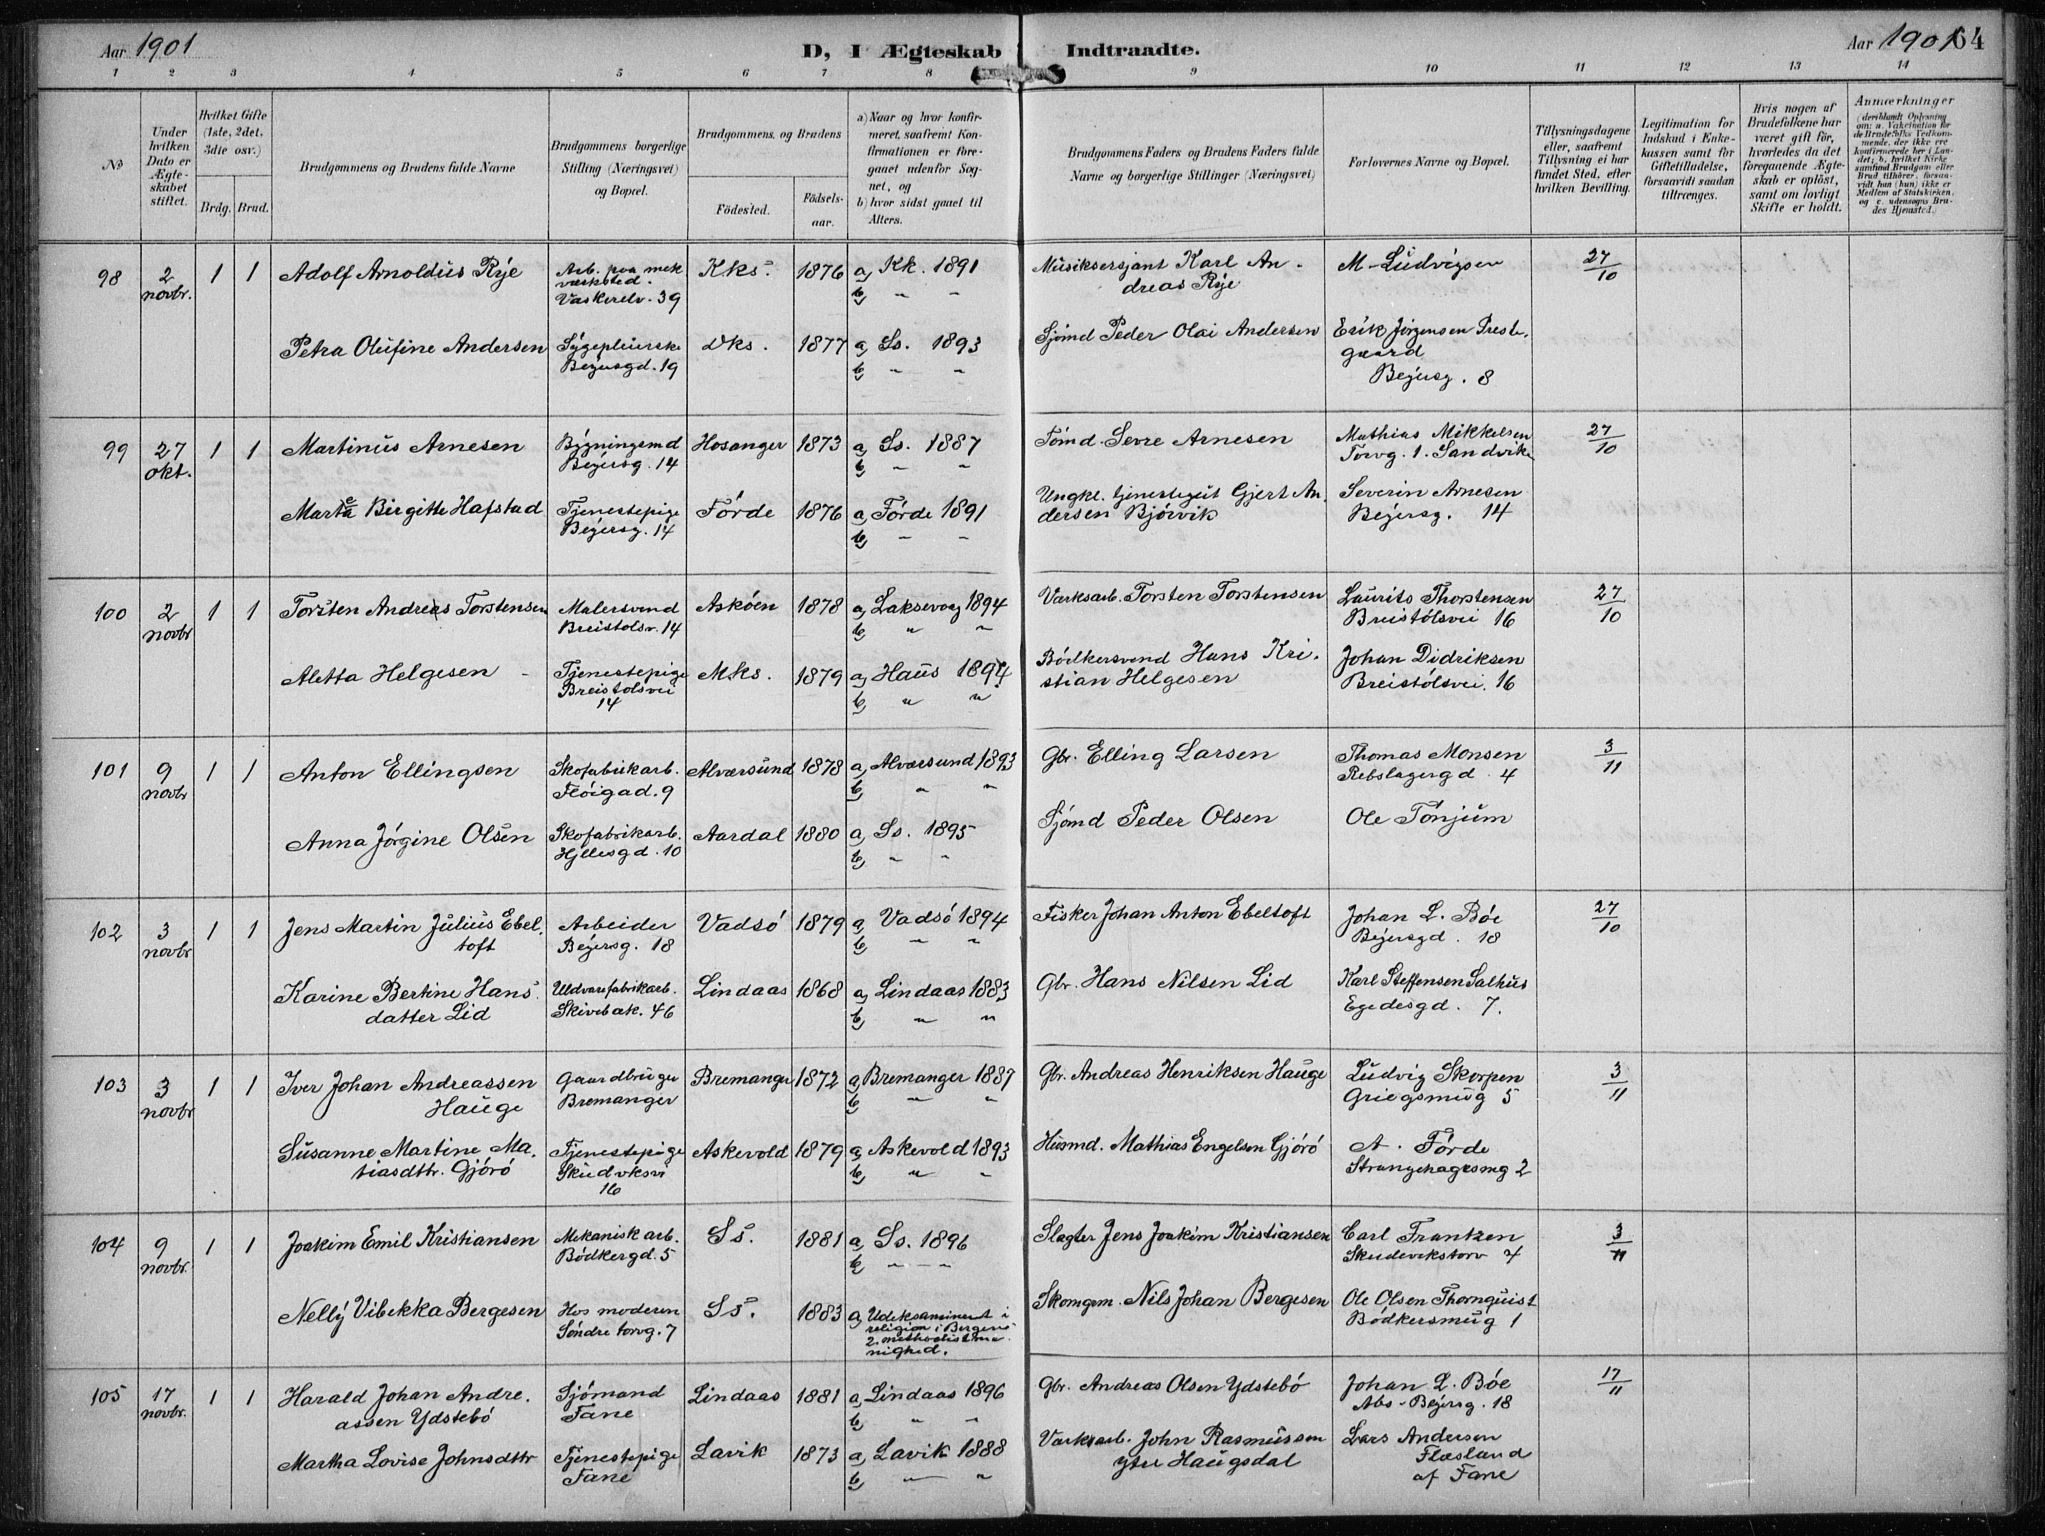 Aar 1901
D, I Ægteskab Indtraadte.
Aar 1901 64
1 2 3 4 5 6 7 8 9 10 11 12 13 14
No
Under hvilken Dato er Ægteskabet stiftet.
Hvilket Gifte (1ste, 2det, 3die osv.)
Brdg. Brud.
Brudgommens og Brudens fulde Navne
Brudgommens borgerlige Stilling (Næringsvei) og Bopæl.
Brudgommens og Brudens
Födested.
Födselsaar.
a) Naar og hvor konfirmeret, saafremt Konfirmationen er foregaaet udenfor Sognet, og
b) hvor sidst gaaet til Alters.
Brudgommens Faders og Brudens Faders fulde Navne og borgerlige Stillinger (Næringsvei)
Forlovernes Navne og Bopæl.
Tillysningsdagene eller, saafremt Tillysning ei har fundet Sted, efter hvilken Bevilling.
Legitimation for Indskud i Enkekassen samt for Giftetilladelse, forsaavidt saadan tiltrænges.
Hvis nogen af Brudefolkene har været gift för, hvorledes da det foregaaende Ægteskab er oplöst, samt om lovligt Skifte er holdt.
Anmærkninger (deriblandt Oplysning om: a. Vakcination for de Brudefolks Vedkommende, der ikke ere konfirmerede her i Landet; b. hvilket Kirkesamfund Brudgom eller Brud tilhörer, forsaavidt han (hun) ikke er Medlem af Statskirken, og c. udensogns Brudes Hjemsted.)
98 2 novbr. 1 1 Adolf Arnoldus Rÿe Arb. paa mek værksted. Vaskerelv. 39 Kks. 1876 a, Kk. 1891 b, " " Musiksersjant Karl Andreas Rÿe M. Ludvigsen 27/10
Petra Olufine Andersen Sÿgepleierske Beÿersgd. 19 Dks. 1877 a, Ss. 1893 b, " " Sjömd Peder Olai Andersen Erik Jörgensen Prestegaard Beÿersg. 8
99 27 okt. 1 1 Martinus Arnesen Bÿgningsmd Beÿersg. 14 Hosanger 1873 a, Ss. 1887 b, " " Tömd. Sevre Arnesen Mathias Mikkelsen Torvg. 1. Sandviken 27/10
Marta Birgitte Hafstad Tjenestepige Beÿersg. 14 Förde 1876 a, Förde 1891 b, " " Ungkl. Gjert Andersen Bjórvik Severin Arnesen Beÿersg. 14
100 2 novbr 1 1 Torsten Andreas Torstensen Malersvend Breistolsv. 14 Askóen 1878 a, Laksevog 1894 b, " " Værksarb. Torsten Torstensen Laurits Thorstensen Breistólsvei 16 27/10
Aletta Helgesen Tjenestepige Breistolsvei 14 Mks. 1879 a, Haus 1894 b, " " Bódkersvend Hans Kristian Helgesen Johan Didriksen Breistólsvei. 16
101 9 novbr 1 1 Anton Ellingsen Skofabrikarb. Flóigad. 9 Alværsund 1878 a, Alværsund 1893 b, " " Gbr. Elling Larsen Thomas Monsen Rebslagergd. 4 3/11
Anna Jórgine Olsen Skofabrikarb. Hjellesgd. 10 Aardal 1880 a, Ss. 1895 b, " " Sjómd Peder Olsen Ole Tónjum
102 3 novbr 1 1 Jens Martin Julius Ebeltoft Arbeider Beÿersg. 18 Vadsó 1879 a, Vadsó 1894 b, " " Fisker Johan Anton Ebeltoft Johan L. Bóe Beÿersgd. 18 27/10
Karine Bertine Hansdatter Lid Uldvarefabrikarb. Skivebæk. 46 Lindaas 1868 a, Lindaas 1883 b, " " Gbr. Hans Nilsen Lid Karl Steffensen Salhus Egedesgd. 7.
103 3 novbr 1 1 Iver Johan Andreassen Hauge Gaardbruger Bremanger Bremanger 1872 a, Bremanger 1887 b, " " Gbr. Andreas Henriksen Hauge Ludvig Skorpen Griegsmug 5 3/11
Susanne Martine Matiasdttr. Gjóró Tjenestepige Skudvksv 16 Askevold 1879 a, Askevold 1893 b, " " Husmd. Mathias Engelsen Gjóró A. Fórde Strangehagesmg 2
104 9 novbr. 1 1 Joakim Emil Kristiansen Mekanisk arb. Bódkergd. 5 Ss. 1881 a, Ss. 1896 b, " " Slagter Jens Joakim Kristiansen Carl Frantzen Skudevikstorv 4 3/11
Nellÿ Vibekka Bergesen Hos moderen Sóndre torvg. 7 Ss. 1883 a, Udeksamineret i religion i Bergens 2. methodistmenighed. Skomgem. Nils Johan Bergesen Ole Olsen Thornquist Bódkersmug 1
105 17 novbr. 1 1 Harald Johan Andreassen Ydstebó Sjómand Fane Lindaas 1881 a, Lindaas 1896 b, " " Gbr. Andreas Olsen Ydstebó Johan L. Bóe Abs-Beÿersg. 18 17/11
Martha Lovise Johnsdttr Tjenestepige Fane Lavik 1873 a, Lavik 1888 b, " " Værksarb. John Rasmussen ytre Haugsdal Lars Andersen Flæsland af Fane